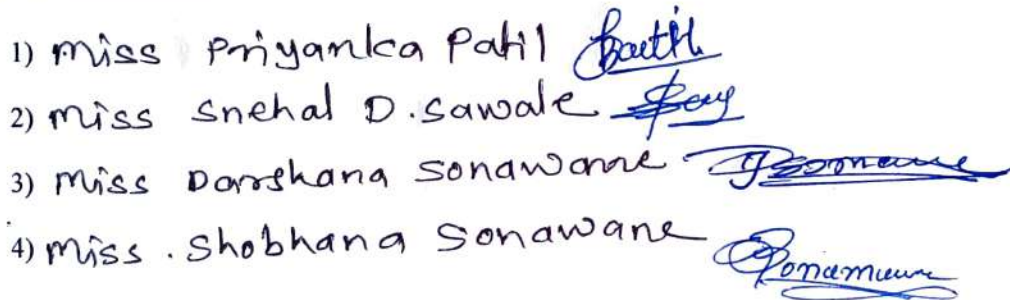 1) Miss Priyanka Patil
2) Miss Snehal D. Sawale
3) Miss Darshana Sonawane
4) Miss . Shobhana Sonawane